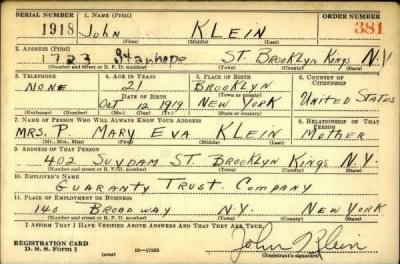 SERIAL NUMBER 1. NAME (Print) ORDER NUMBER
1918 John KLEIN 381
(First) (Middle) (Last)
2. ADDRESS (Print)
1723 Stanhope ST. BROOKLYN KINGS N.Y.
(Number and street or R. F. D. number) (Town) (County) (State)
3. TELEPHONE 4. AGE IN YEARS 5. PLACE OF BIRTH 6. COUNTRY OF CITIZENSHIP
NONE 21 BROOKLYN
DATE OF BIRTH (Town or county)
OCT 12 1919 NEW YORK UNITED STATES
(Exchange) (Number) (Mo.) (Day) (Yr.) (State or country)
7. NAME OF PERSON WHO WILL ALWAYS KNOW YOUR ADDRESS 8. RELATIONSHIP OF THAT PERSON
MRS. P. MARY EVA KLEIN MOTHER
(Mr., Mrs., Miss) (First) (Middle) (Last)
9. ADDRESS OF THAT PERSON
402 SUYDAM ST. BROOKLYN KINGS N.Y.
(Number and street or R. F. D. number) (Town) (County) (State)
10. EMPLOYER'S NAME
GUARANTY TRUST COMPANY
11. PLACE OF EMPLOYMENT OR BUSINESS
140 BROADWAY N.Y. NEW YORK
(Number and street or R. F. D. number) (Town) (County) (State)
I AFFIRM THAT I HAVE VERIFIED ABOVE ANSWERS AND THAT THEY ARE TRUE.
REGISTRATION CARD
D. S. S. Form 1 16—17105 John Klein
(over) (Registrant's signature)